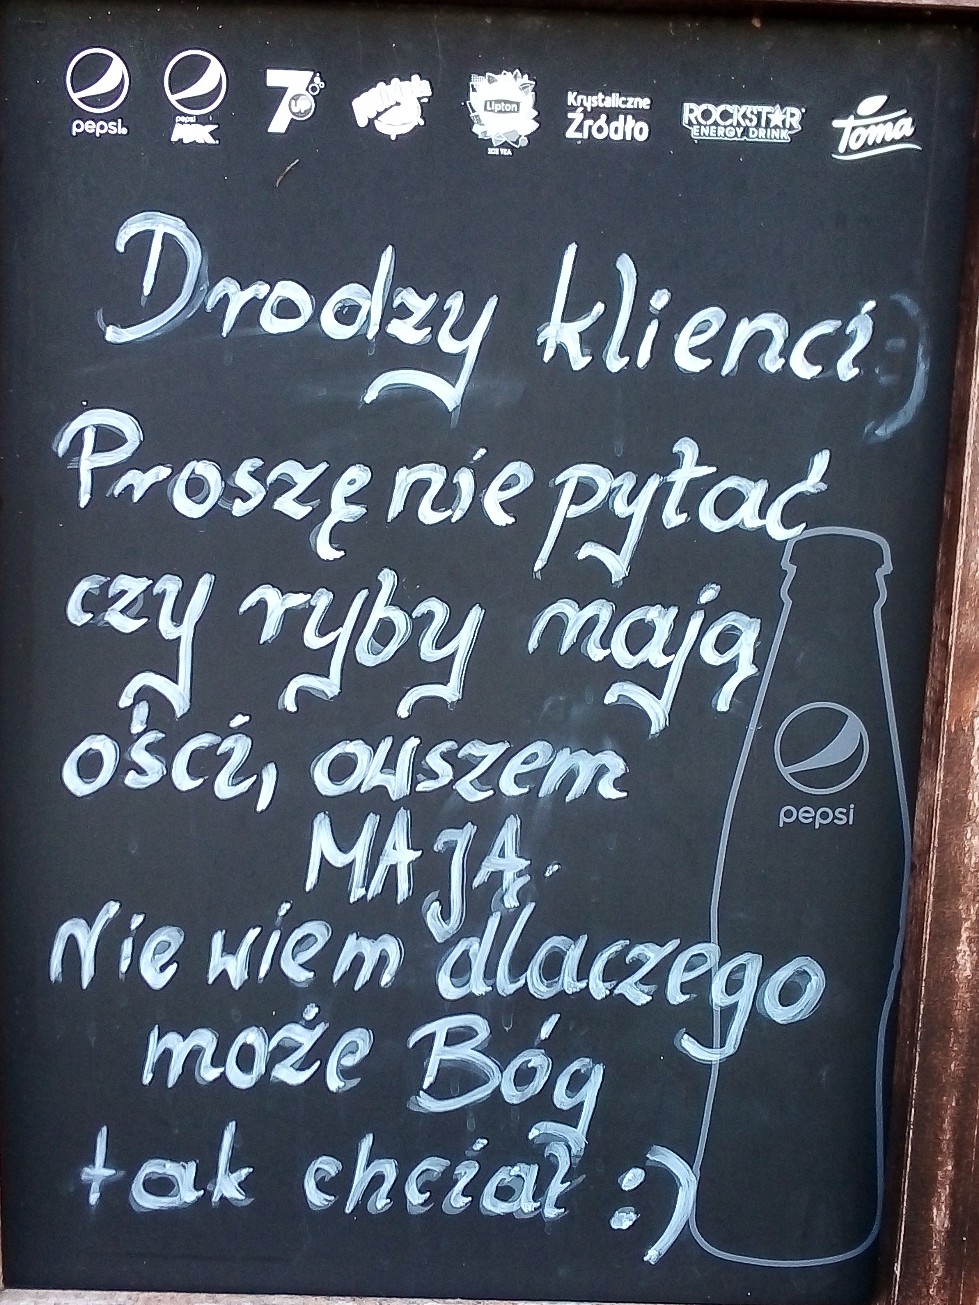 pepsi. pepsi MAX. 7UP Mirinda Lipton ICE TEA Krystaliczne Źródło ROCKSTAR ENERGY DRINK Toma
Drodzy klienci :)
Proszę nie pytać
czy ryby mają
ości, owszem
MAJĄ.
Nie wiem dlaczego
może Bóg
tak chciał :)
pepsi